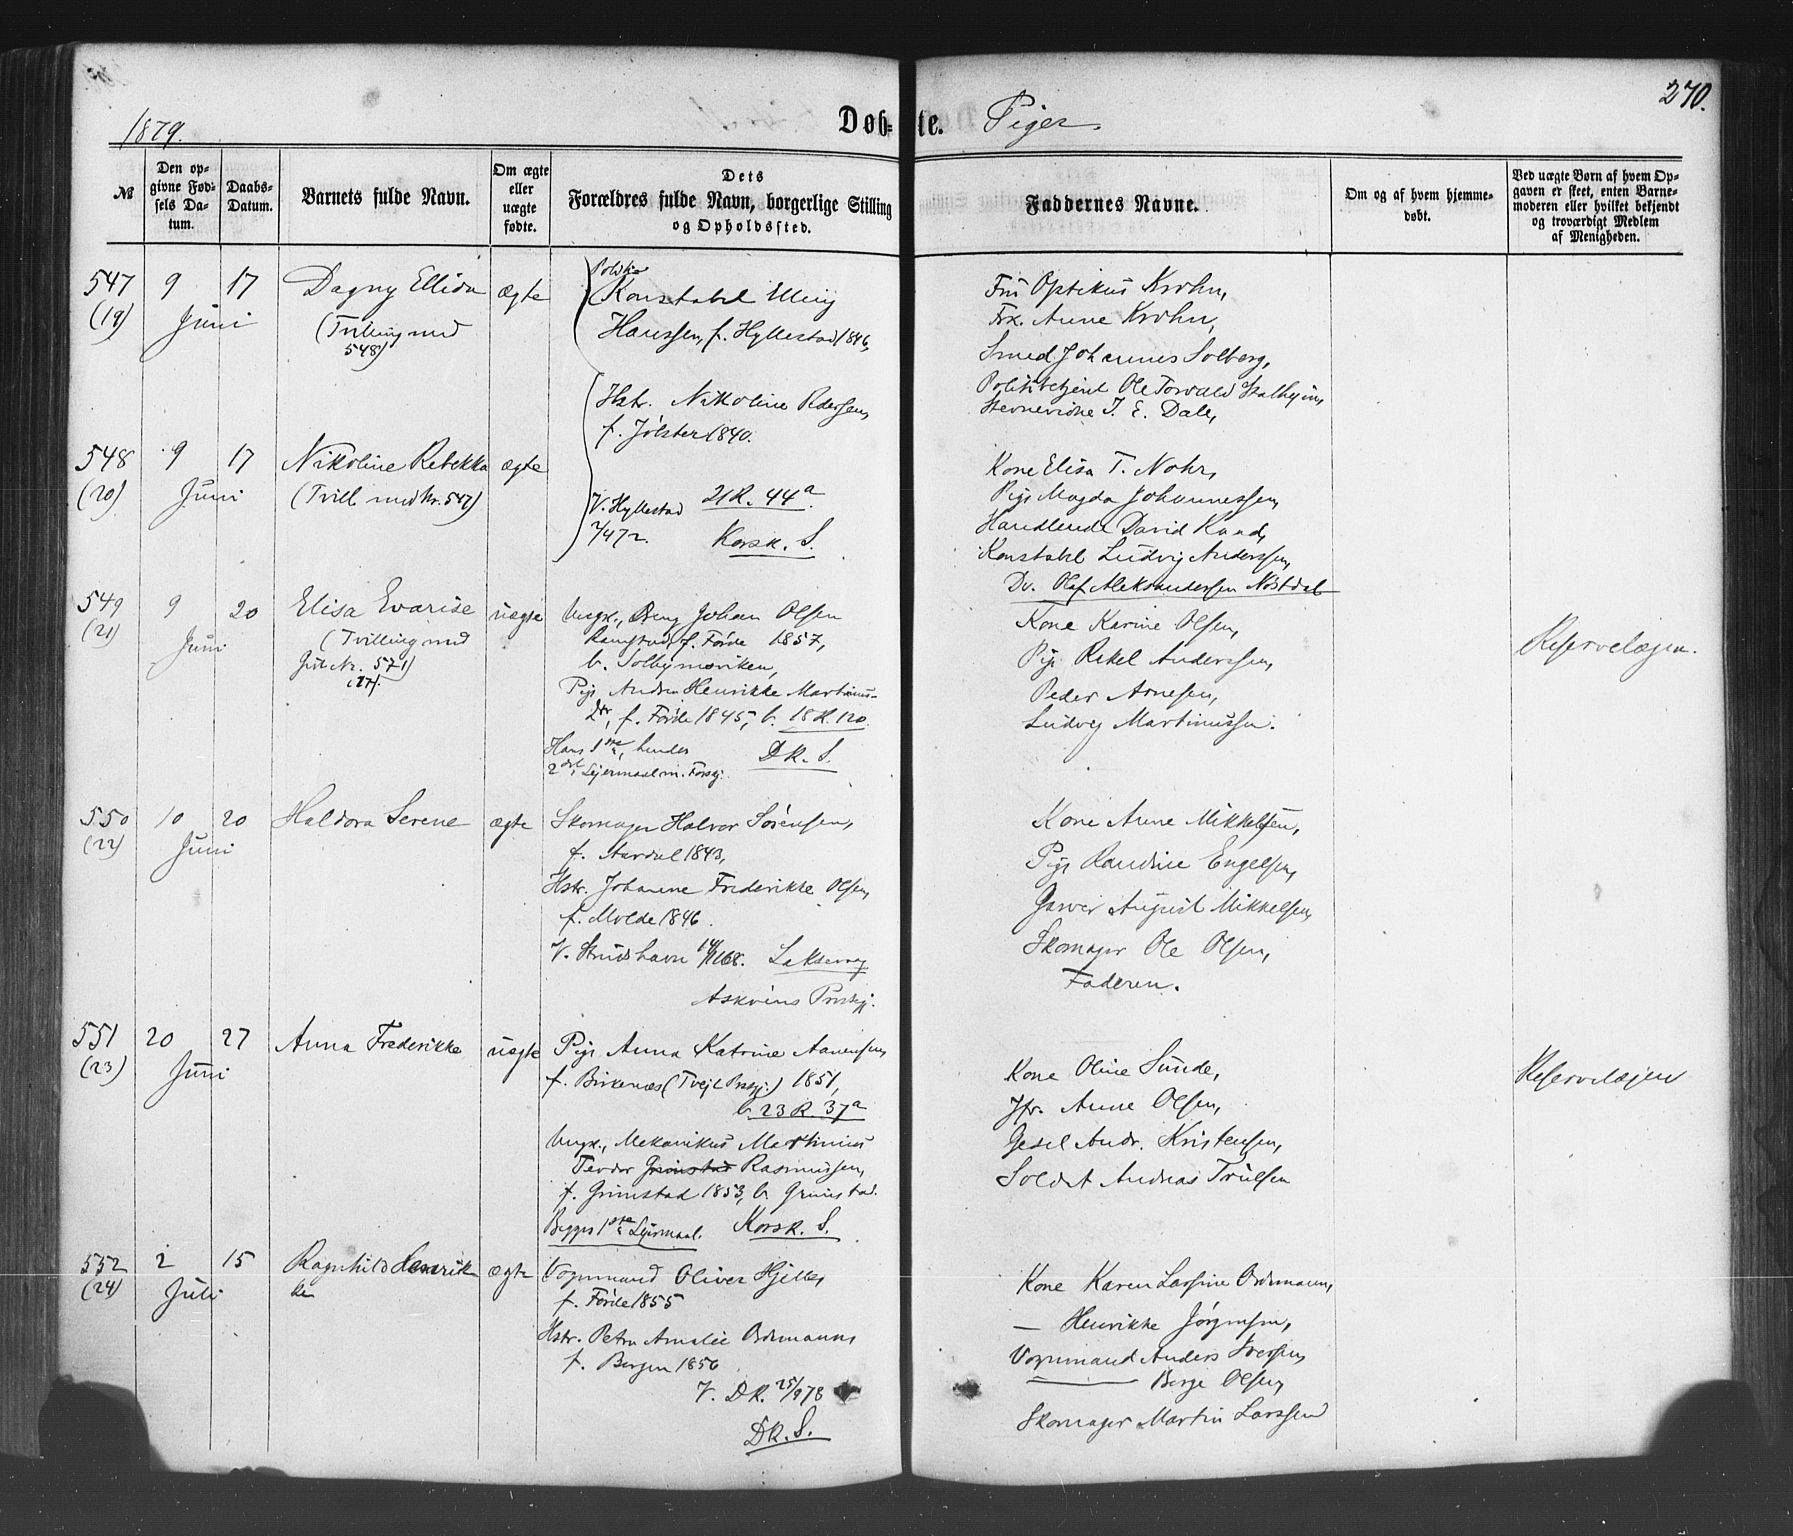 270.
1879.
Døb-te. Piger.
№
Den op-
givne Fød-
sels Da-
tum.
Daabs-
Datum.
Barnets fulde Navn.
Om ægte
eller
uægte
fødte.
Dets
Forældres fulde Navn, borgerlige Stilling
og Opholdssted.
Faddernes Navne.
Om og af hvem hjemme-
døbt.
Ved uægte Børn af hvem Op-
gaven er skeet, enten Barne-
moderen eller hvilket bekjendt
og troværdigt Medlem
af Menigheden.
547 9 17 Dagny Ellida ægte
(19) Juni (Tvilling med
548)
Konstabel
Hanssen, f. Hyllestad 1846,
Hstr. Nikoline Pedersen,
f. Jølster 1840.
Frú Optikus Krohn,
Frk. Anne Krohn,
Smed Johannes Solberg,
Politibetjent Ole Torvald Stalheim,
Stevnevidne J. E. Dale,
548 9 17 Nikoline Rebekka ægte
(20) Juni (Tvill. med Nr. 547)
V. Hyllestad 21 R. 44a
7/4 72. Korsk. S.
Kone Elisa T. Nohr,
Pige Magda Johannessen,
Handlende David Kand,
Konstabel Ludvig Anderssen,
Dv. Olaf Aleksandersen Nøstdal
549 9 20 Elisa Evarise uægte
(21) Juni (Tvilling med
Gut Nr. 571)
(27).
Ungk., Dreng Johan Olsen
f. Førde 1857,
b. Solheimsviken,
Pige Andrea Henrikke Martinus-
Dtr, f. Førde 1845, b. 18 R. 120.
Hans 1ste, hendes DK. S.
2det Leiermaal m. Forskj.
Kone Karine Olsen,
Pige Rakel Anderssen,
Peder Arnesen,
Ludvig Martinussen.
Reservelægen.
550 10 20 Haldora Serene ægte
(22) Juni
Skomager Halvor Sørensen,
f. Aardal 1843,
Hstr. Johanne Frederikke Olsen,
f. Molde 1846.
V. Strudshavn 14/11 68. Laksevaag
Askøens Prstgj.
Kone Anne Mikkelsen,
Pige Randine Engelsen,
Garver August Mikkelsen,
Skomager Ole Olsen,
Faderen.
551 20 27 Anna Frederikke uægte
(23) Juni
Pige Anna Katrine Aanensen,
f. Birkenæs (Tveit Prstgj.) 1851,
b. 23 R. 37a
Ungk., Mekanikus Martinius
Teodor Grimstad Rasmussen,
f. Grimstad 1853, b. Grimstad.
Begges 1ste Leiermaal. Korsk. S.
Kone Oline Sunde,
Jfr. Anne Olsen,
Gesel Andr. Kristensen,
Soldat Andreas Trulsen
Reservelægen
552 2 15 Ragnhild Henrik- ægte
(24) Juli ke
Vognmand Oliver Hjelle,
f. Førde 1855
Hstr. Petra Amalie Ordemann,
f. Bergen 1856
V. DK. 25/9 78
DK. S.
Kone Karen Larsine Ordemann,
— Henrikke Jørgensen,
Vognmand Anders Iversen,
—— Berge Olsen,
Skomager Martin Larssen